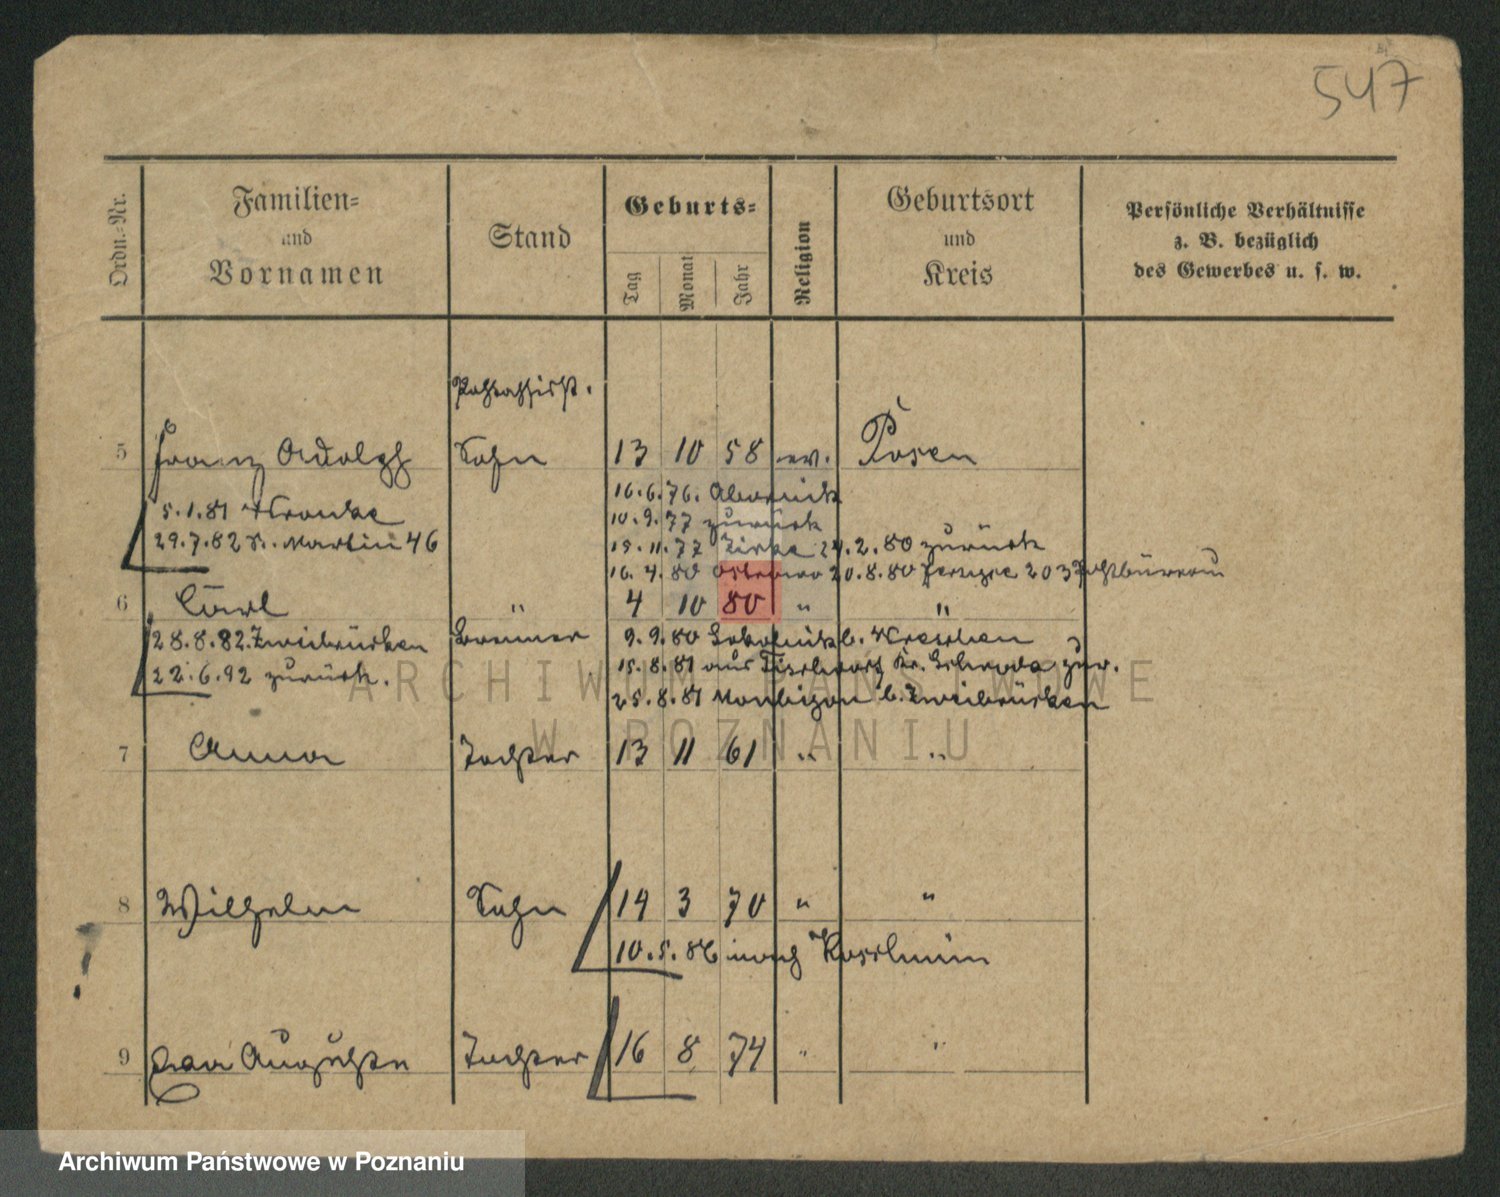 547
Ordn.-Nr.
Familien-
und
Vornamen
Stand
Geburts-
Tag
Monat
Jahr
Religion
Geburtsort
und
Kreis
Persönliche Verhältnisse
z. B. bezüglich
des Gewerbes u. s. w.
5 Franz Adolph Sohn 13 10 58 ev. Posen
16.6.76. Abornick
5.1.81 Wronke
10.9.77 zurück
29.7.82 St. Martin 46
15.11.77 Zirke 24.2.80 zurück
16.4.80 20.8.80 203 Postbüreau
6 Carl 4 10 80 " "
28.8.82. Zweibrücken 9.9.80 b. Wreschen
15.8.81 aus Kr. Schroda zur.
22.6.92 zurück.
25.8.81 b. Zweibrücken
7 Anna Tochter 13 11 61 " "
8 Wilhelm Sohn 14 3 70 " "
10.5.86 nach
9 Auguste Tochter 16 8 74 " "
ARCHIWUM PAŃSTWOWE
W POZNANIU
Archiwum Państwowe w Poznaniu